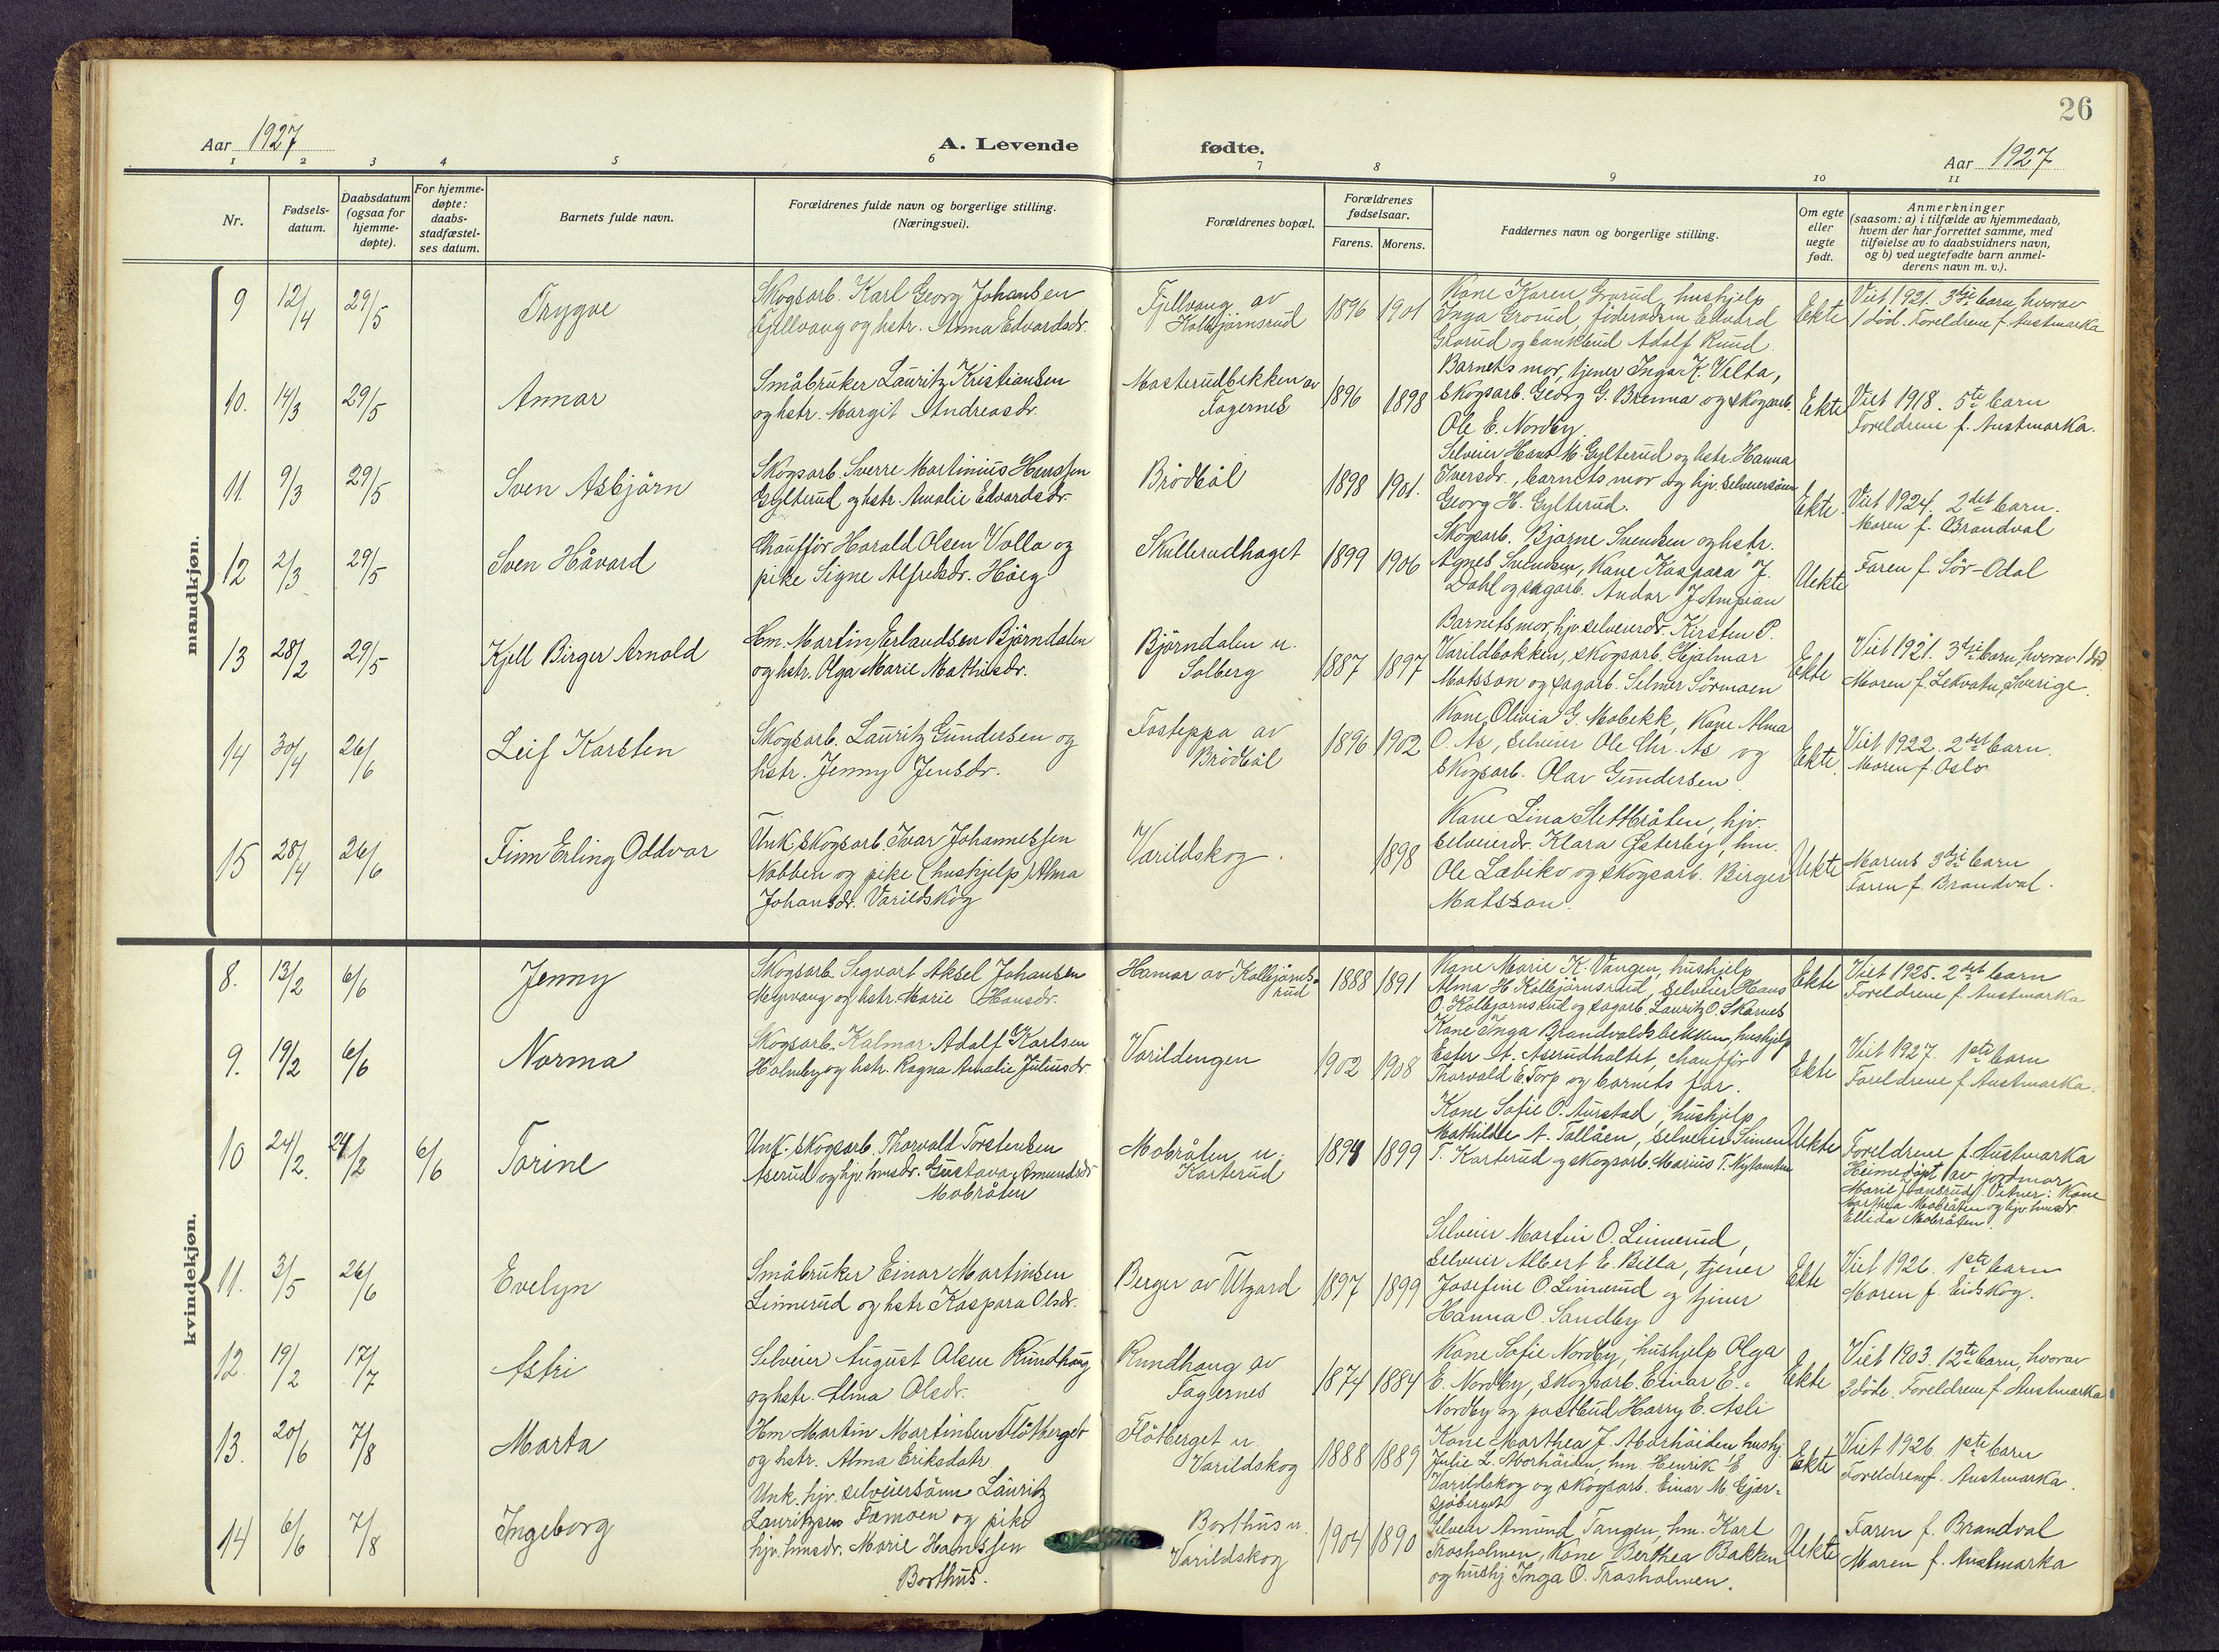 26
Aar 1927
A. Levende fødte.
Aar 1927
1 2 3 4 5 6 7 8 9 10 11
Nr.
Fødsels-
datum.
Daabsdatum
(ogsaa for
hjemme-
døpte).
For hjemme-
døpte:
daabs-
stadfæstel-
ses datum.
Barnets fulde navn.
Forældrenes fulde navn og borgerlige stilling.
(Næringsvei).
Forældrenes bopæl.
Forældrenes
fødselsaar.
Farens. Morens.
Faddernes navn og borgerlige stilling.
Om egte
eller
uegte
født.
Anmerkninger
(saasom: a) i tilfælde av hjemmedaab,
hvem der har forrettet samme, med
tilføielse av to daabsvidners navn,
og b) ved uegtefødte barn anmel-
derens navn m. v.).
mandkjøn.
9 12/4 29/5
Trygve
Skogsarb. Karl Georg Johansen
Fjellvang og hstr. Anna Edvardsdr.
Fjellvang av
Kolbjörnsrud
1896 1901
Kone Karen Grorud, hushjelp
Inga Grorud, föderaadsm Edvard
Grorud og bankbud Adolf Ruud.
Ekte
Viet 1921. 3dje barn, hvorav
1 död. Foreldrene f. Austmarka
10. 14/3 29/5
Annar
Småbruker Lauritz Kristiansen
og hstr. Margit Andreasdr.
Masterudbekken av
Fagernes
1896 1898
Barnets mor, tjener Inga K. Velta,
Skogsarb. Georg G. Brenna og skogsarb.
Ole E. Nordby.
Ekte
Viet 1918. 5te barn
Foreldrene f. Austmarka.
11. 9/3 29/5
Sven Asbjörn
Skogsarb. Sverre Martinius Hanssen
Gylterud og hstr. Amalie Edvardsdr.
Brödböl
1898 1901.
Selveier Hans M. Gylterud og hstr. Hanna
Iversdr., barnets mor og hjv. selveiersönn
Georg H. Gylterud.
Ekte.
Viet 1924. 2det barn.
Moren f. Brandval
12 2/3 29/5
Sven Håvard
Chaufför Harald Olsen Volla og
pike Signe Alfredsdr. Höeg
Skullerudhaget
1899 1906
Skogsarb. Bjarne Svendsen og hstr.
Agnes Svendsen, Kone Kaspara J.
Dahl og sagarb. Andor J. Ampian
Uekte
Faren f. Sör-Odal
13 28/2 29/5
Kjell Birger Arnold
Hm. Martin Erlandsen Björndalen
og hstr. Olga Marie Mathisdr.
Björndalen u.
Solberg
1887 1897
Barnets mor, hjv. selveierdr. Kirsten P.
Varildbakken, skogsarb. Hjalmar
Matsson og sagarb. Selmer Sörmoen
Ekte
Viet 1921. 3dje barn, hvorav 1 död
Moren f. Lekvattn, Sverige.
14 30/4 26/6
Leif Karsten
Skogsarb. Lauritz Gundersen og
hstr. Jenny Jensdr.
Fosteppa av
Brödböl
1896 1902
Kone Olivia G. Mobekk, Kone Alma
O. As, selveier Ole Chr. As og
Skogsarb. Olav Gundersen.
Ekte.
Viet 1922. 2det barn.
Moren f. Oslo
15 28/4 26/6
Finn Erling Oddvar
Unk. Skogsarb. Ivar Johannessen
Nabben og pike (hushjelp) Alma
Johansdr. Varildskog
Varildskog.
1898
Kone Lina Slettbråten, hjv.
selveierdr. Klara Østerby, hm.
Ole Læbiko og skogsarb. Birger
Matsson.
Uekte
Morens 3dje barn
Faren f. Brandval.
kvindekjøn.
8. 13/2 6/6
Jenny
Skogsarb. Sigvart Aksel Johansen
Myrvang og hstr. Marie Hansdr.
Hamar av Kolbjörns-
rud
1888 1891
Kone Marie K. Vangen, hushjelp
Alma H. Kolbjörnsrud, selveier Hans
O. Kolbjörnsrud og sagarb. Lauritz O. Skarnes
Ekte
Viet 1925. 2det barn
Foreldrene f. Austmarka
9. 19/2 6/6
Norma
Skogsarb. Kalmar Adolf Karlsen
Holmby og hstr. Ragna Amalie Juliusdr.
Varildengen
1902 1908
Kone Inga Brandvoldsbekken, hushjelp
Ester A. Aserudholtet, chaufför
Thorvald E. Torp og barnets far.
Ekte
Viet 1927. 1ste barn
Foreldrene f. Austmarka.
10 24/2. 24/2 6/6
Torine
Unk. skogsarb. Thorvald Torstensen
Aserud og hjv. husdr. Gustava Amundsdr
Mobråten
Mobråten u.
Karterud
1898 1899
Kone Sofie O. Aurstad, hushjelp
Mathilde A. Tollåen, selveier Simen
T. Karterud og skogsarb. Marius T. Nytomten
Uekte
Foreldrene f. Austmarka
Heimedöpt av jordmor
Marie . Vitner: Kone
Marthea Mobråten og hjv. husdr.
Ellida Mobråten.
11. 3/5 26/6
Evelyn
Småbruker Einar Martinsen
Linnerud og hstr Kaspara Olsdr.
Berger av Utgard
1897 1899
Selveier Martin O. Linnerud,
selveier Albert E. Billa, tjener
Josefine O. Linnerud og tjener
Hanna O. Sandby
Ekte
Viet 1926. 1ste barn
Moren f. Eidskog.
12. 19/2 17/7
Astri
Selveier August Olsen Rundhaug
og hstr. Alma Olsdr.
Rundhaug av
Fagernes
1874 1884
Kone Sofie Nordby, hushjelp Olga
E. Nordby, skogsarb. Einar E.
Nordby og postbud Harry E. Asli
Ekte
Viet 1903. 12te barn, hvorav
3 döde. Foreldrene f. Austmarka
13. 20/6 7/8
Marta
Hm Martin Martinsen Flötberget
og hstr. Alma Eriksdatr.
Flötberget u.
Varildskog
1888 1889
Kone Marthea J. Aborhöiden, hushj.
Julie L. Aborhöiden, hm. Henrik E
Varildskog og skogsarb. Einar M. Gjer-
sjöberget
Ekte
Viet 1926 1ste barn
Foreldrene f. Austmarka.
14 6/6 7/8
Ingeborg
Unk. hjv. selveiersönn Lauritz
Lauritzsen Tæmoen og pike
hjv. husdr. Marie Hanssen
Borthus.
Borthus u.
Varildskog
1904 1890
Selveier Amund Tangen, hm. Karl
Trasholmen, Kone Berthea Bakken
og hushj Inga O. Trasholmen.
Uekte
Faren f. Brandval
Moren f. Austmarka